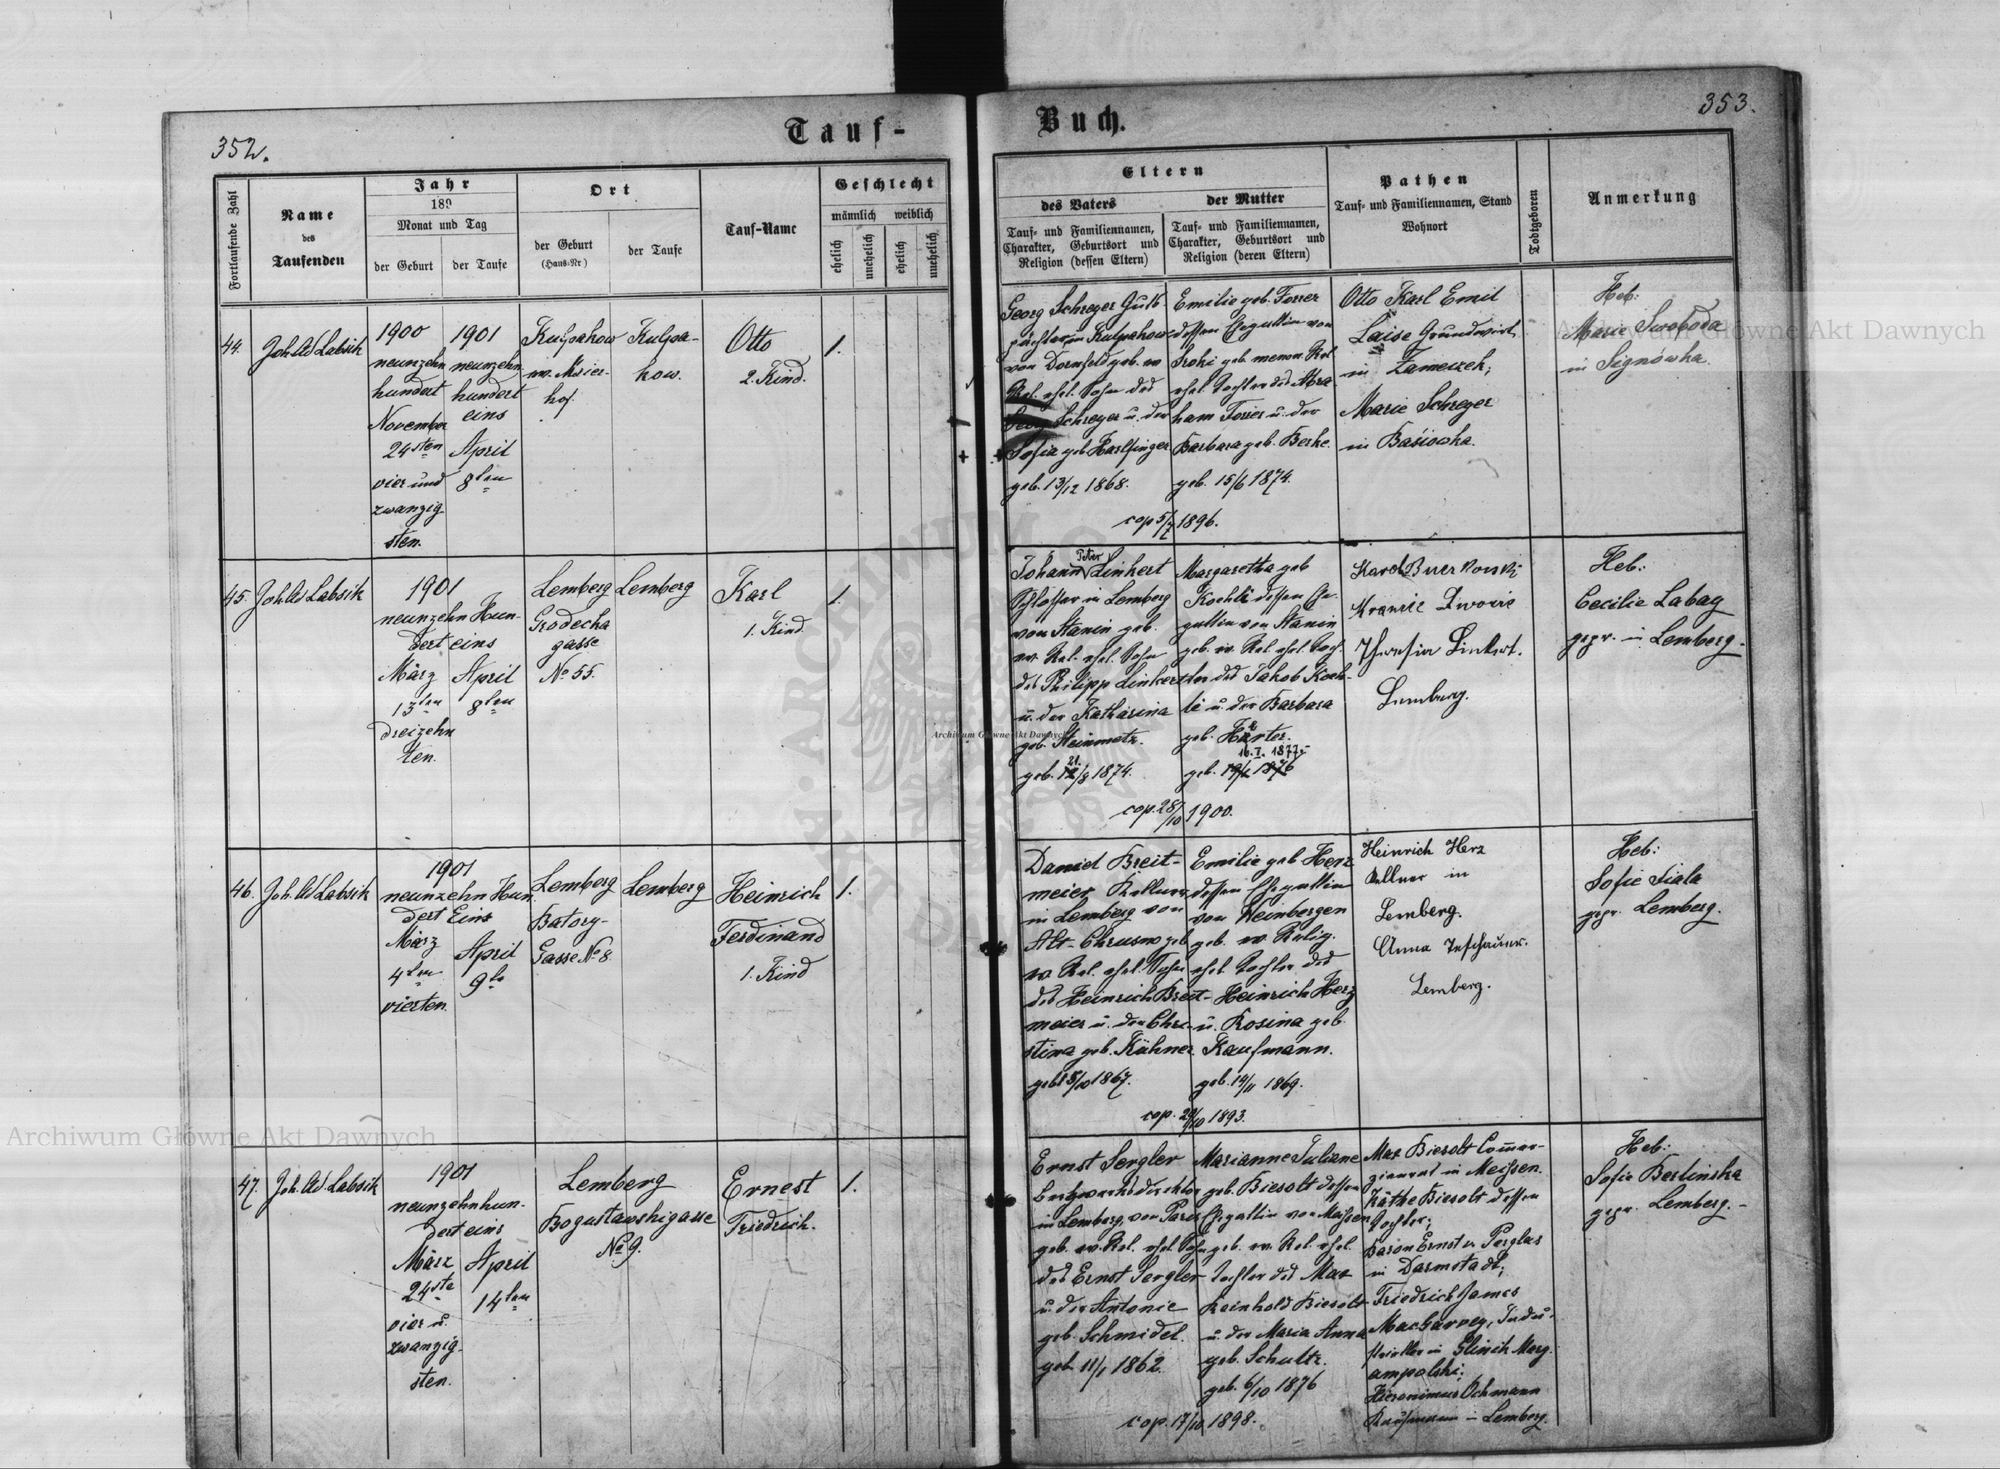 352.
Tauf-
Fortlaufende Zahl
Name
des
Taufenden
Jahr
189
Monat und Tag
der Geburt
der Taufe
Ort
der Geburt
(Haus-Nr)
der Taufe
Tauf-Name
Geschlecht
männlich
weiblich
ehelich
unehelich
ehelich
unehelich
44.
Joh Ad Labsik
1900
neunzehn
hundert
November
24sten
vier und
zwanzig
sten.
1901
neunzehn
hundert
eins
April
8ten
Kulpahow
hof
Kulpa-
how.
Otto
2. Kind.
1.
45.
Joh Ad Labsik
1901
neunzehn Hun-
dert eins
März
13ten
dreizehn
ten.
April
8ten
Lemberg
Grodecka
gasse
No 55.
Lemberg
Karl
1. Kind
1.
46.
Joh. Ad Labsik
1901
neunzehn Hun
dert Eins
März
4ten
vierten.
April
9te
Lemberg
Batory-
Gasse No 8
Lemberg
Heinrich
Ferdinand
1. Kind
1.
47.
Joh. Ad Labsik
1901
neunzehnhun-
dert eins
März
24ste
vier u.
zwanzig
sten.
April
14ten
Lemberg
Boguslawskigasse
No 9.
Ernest
Friedrich.
1.
Buch.
353.
Eltern
des Vaters
Tauf- und Familiennamen,
Charakter, Geburtsort und
Religion (dessen Eltern)
der Mutter
Tauf- und Familiennamen,
Charakter, Geburtsort und
Religion (deren Eltern)
Pathen
Tauf- und Familiennamen, Stand
Wohnort
Todtgeboren
Anmerkung
Georg Schreyer
pächter in Kulpahow
von Dornfeld geb. ev
Rel. ehel. Sohn des
Georg Schreyer u. der
Sofia geb Harlfinger
geb. 13/12 1868.
Emilie geb. Forrer
dessen Ehegattin von
ehel Tochter des Abra
ham Forrer u. der
Barbara geb. Berke.
geb. 15/6 1874.
cop 5/7 1896.
Otto Karl Emil
Laise Grundwirt
in Zameczek;
Marie Schreyer
in Basiowka.
Heb:
Marie Swoboda
in Signowka
Johann Peter Linkert
Schlosser in Lemberg
von Stanin geb.
ev. Rel. ehel. Sohn
des Philipp Linkert
u. der Katharina
geb. Steinmetz.
geb. 21./8 1874.
Margaretha geb
Koehli dessen Ehe-
gattin von Stanin
geb. ev. Rel. ehel. Toch-
ter des Jakob Koeh-
li u. der Barbara
geb. Harter.
16. I. 1877.
geb. 19/2 1876
cop. 28/10 1900.
Theresia Linkert.
Lemberg.
Heb:
Cecilie Labay
gepr. in Lemberg.
Daniel Breit-
meier Kellner
in Lemberg von
Alt-Chrusno geb
ev. Rel. ehel. Sohn
des Heinrich Breit-
meier u. der Chri-
stina geb. Kühner
geb 15/10 1867.
Emilie geb Herz
dessen Ehegattin
von Weinbergen
geb. ev. Relig.
ehel Tochter des
Heinrich Herz
u. Rosina geb.
Kaufmann.
geb. 19/11 1869.
cop. 29/10 1893.
Heinrich Herz
Kellner in
Lemberg.
Anna Teschauer.
Lemberg.
Heb:
Sofie Siala
gepr. Lemberg.
Ernst Sergler
in Lemberg, von Paris
geb. ev. Rel. ehel Sohn
des Ernst Sergler
u. der Antonie
geb. Schmidel.
geb. 11/1 1862
Marianne Juliane
geb. Biesolt dessen
Ehegattin von Meissen
geb. ev. Rel. ehel.
Tochter des Max
Reinhold Biesolt
u. der Maria Anna
geb. Schultz.
geb. 6/10 1876
cop. 17/10 1898.
Max Biesolt Commer-
zienrat in Meissen.
Käthe Biesolt dessen
Tochter;
Baron Ernst v. Perglas
in Darmstadt;
Friedrich James
MacGarvey, Indu-
strieller in Glinik Mary-
ampolski;
Hieronimus Ochmann
Kaufmann in Lemberg.
Heb:
Sofie Berlinska
gepr. Lemberg.
Archiwum Główne Akt Dawnych
Archiwum Główne Akt Dawnych
Archiwum Główne Akt Dawnych